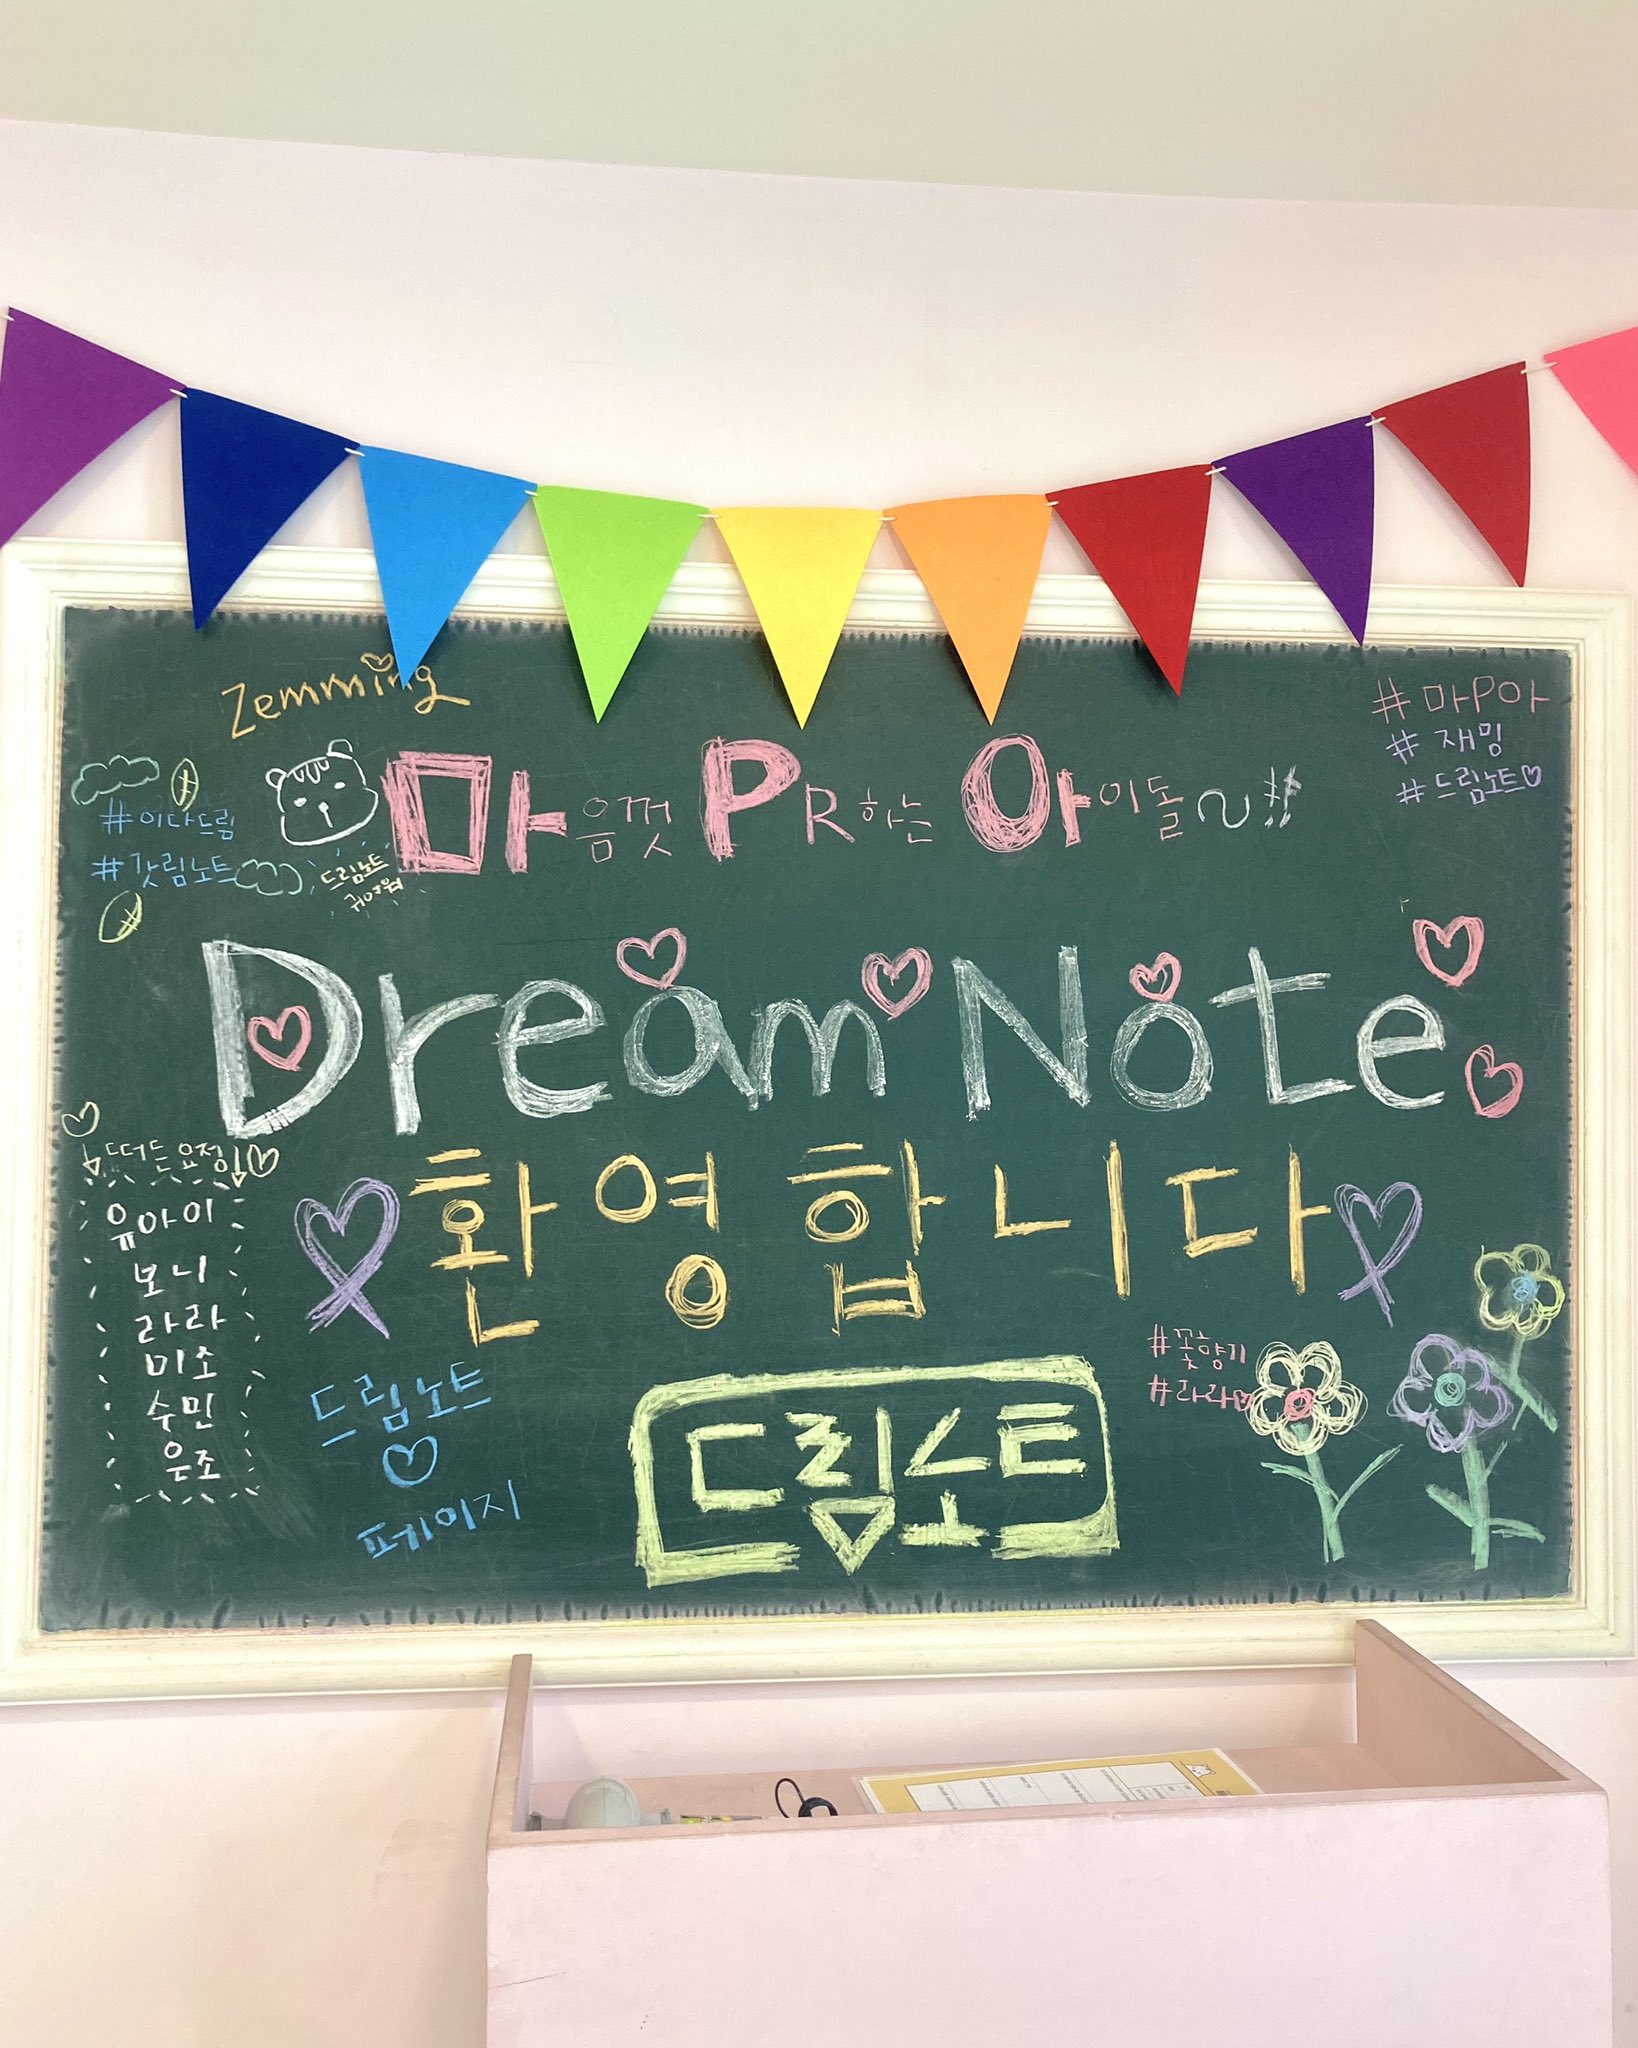 Zemming
#마P아
#재밍
#드림노트
마음껏 PR하는 아이돌~!!
#이다드림
#갓림노트
드림노트
귀여워
Dream Note
떠드는 요정
유아이
보니
라라
미소
수민
은조
환영합니다
드림노트
페이지
#꽃향기
#라라
드림노트